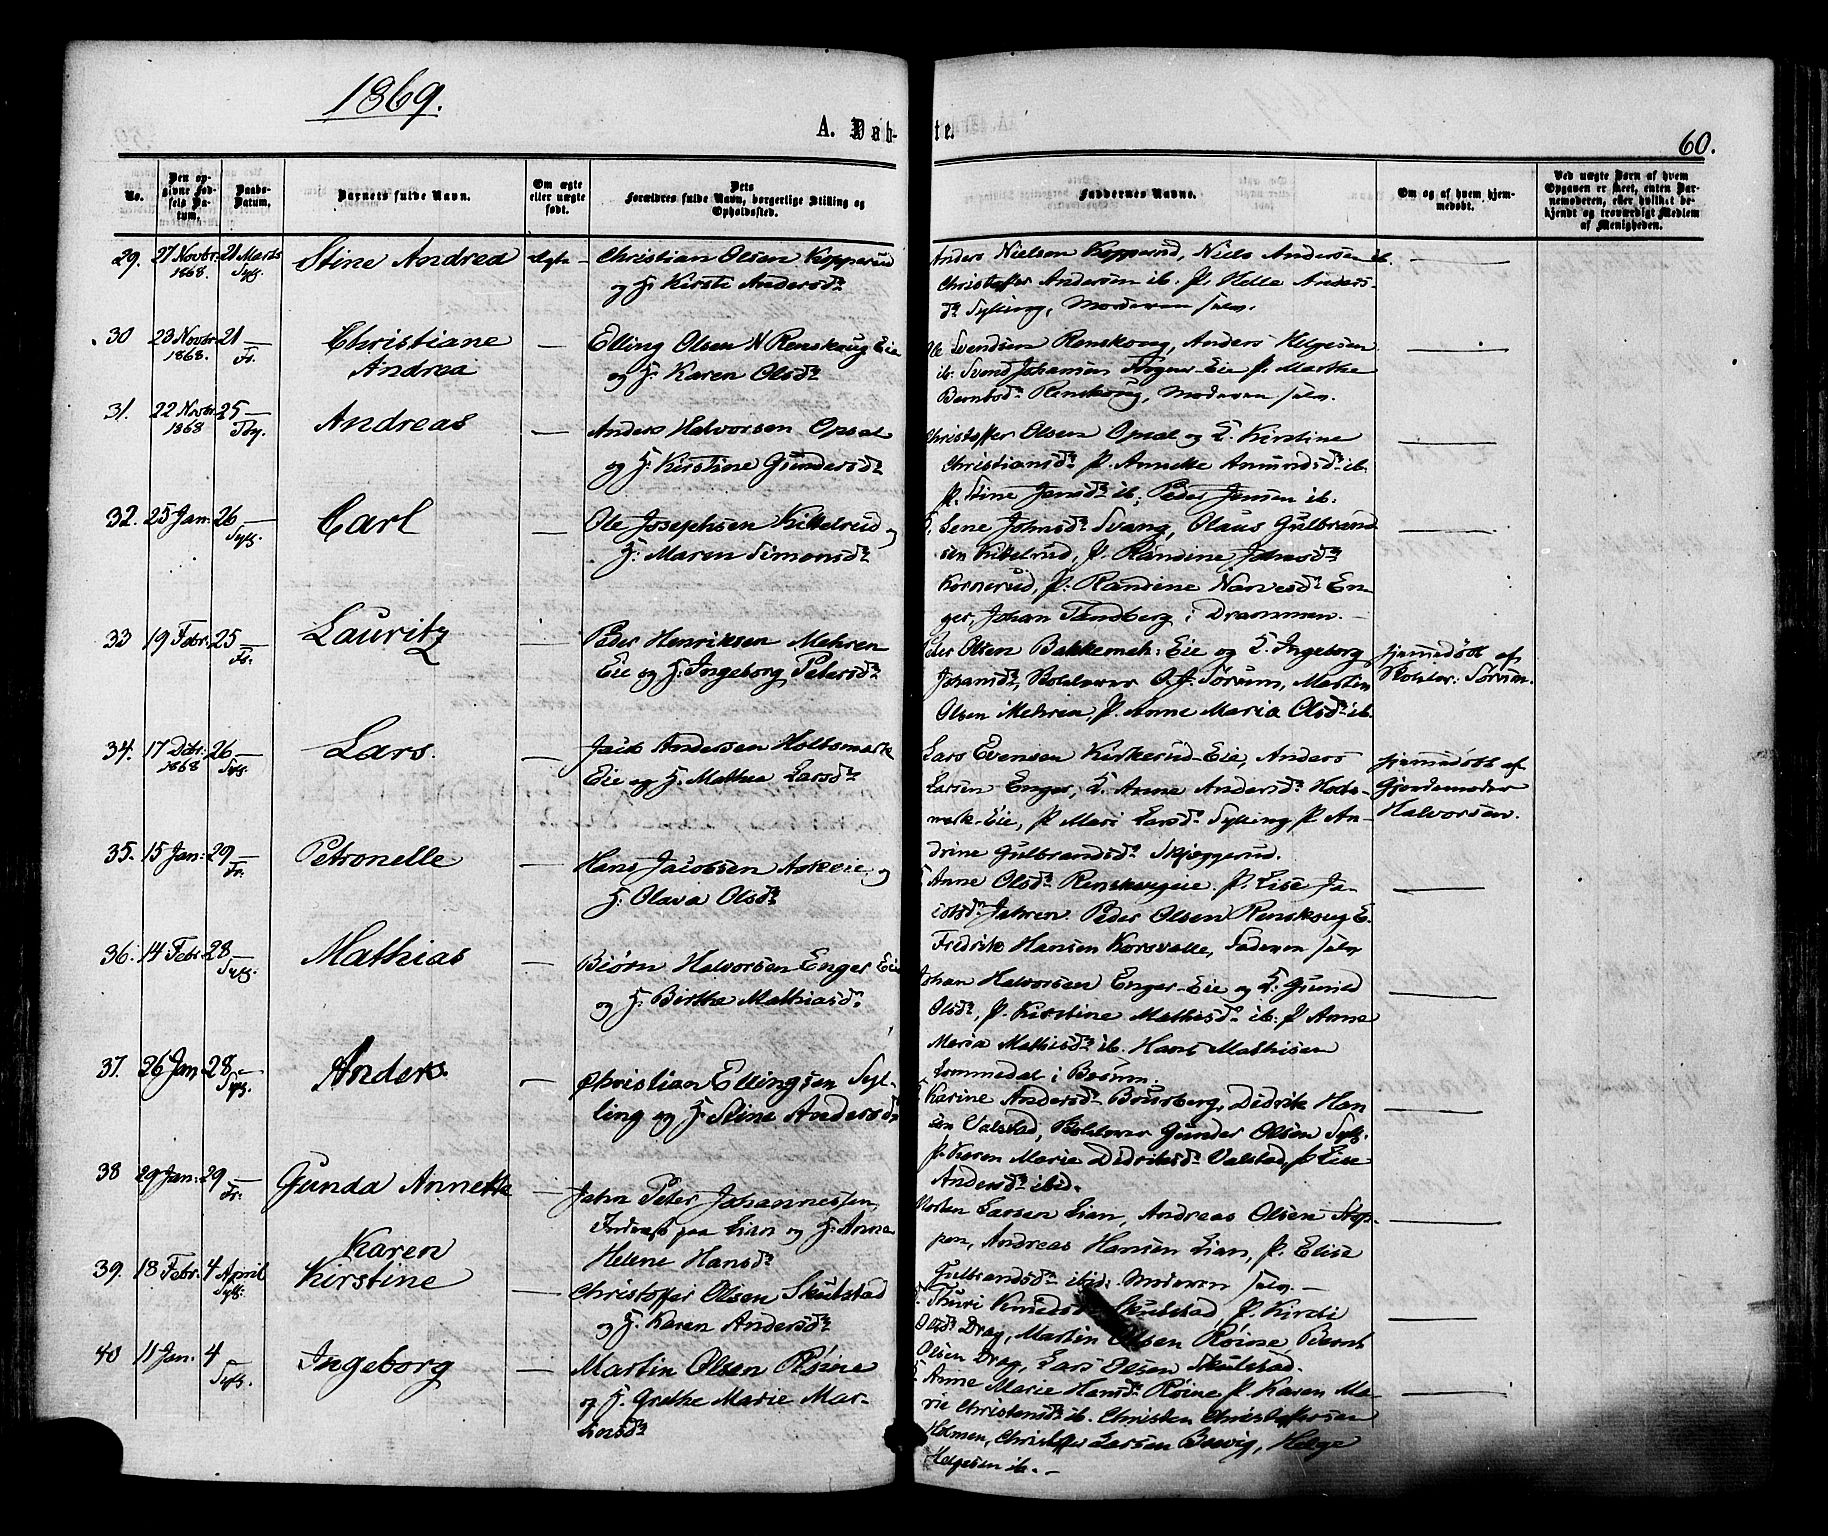 1869.
A. Døb-
te.
60.
No.
Den op-
givne Fød-
sels Da-
tum.
Daabs-
Datum.
Barnets fulde Navn.
Om ægte
eller uægte
født.
Dets
Forældres fulde Navn, borgerlige Stilling og
Opholdssted.
Faddernes Navne.
Om og af hvem hjem-
medøbt.
Ved uægte Børn af hvem
Opgaven er skeet, enten Bar-
nemoderen, eller hvilket be-
kjendt og troværdigt Medlem
af Menigheden.
29. 27 Novbr. 1868. 21 Marts Syll. Stine Andrea ægte
Christian Olsen Kopperud
og H. Kirsti Andersdr
Anders Nielsen Kopperud, Niels Andersen ib.
Christoffer Andersen ib. P. Helle Anders-
dr Sylling, Moderen selv.
30 23 Novbr. 1868. 21 — Fr. Christiane
Andrea
Elling Olsen N Renskoug Eie
og H. Karen Olsdr
Ole Svendsen Renskoug, Anders Helgesen
ib. Svend Johansen Eie P. Marthe
Berntsdr Renskoug, Moderen selv.
31. 22 Novbr. 1868 25 — Andreas
Anders Halvorsen Opsal
og H. Kirstine Gundersdr
Christoffer Olsen Opsal og H. Kirstine
Christiansdr P. Annethe Amundsdr ib.
P. Stine Jensdr ib. Peder Jensen ib.
32. 25 Jan: 26 — Syll. Carl
Ole Josephsen Kittelrud og
H. Maren Simonsdr
Lene Johnsdr Svang, Olaus Gulbrand-
sen Kittelrud, P. Randine Johnsdr
Kornerud, P. Randine Narvesdr En-
ger, Johan Tandberg i Drammen.
33 19 Febr. 25 — Fr: Lauritz
Peder Henriksen Mehren
Eie og H. Ingeborg Petersdr
Peder Olsen Bakkemeh: Eie og H. Ingeborg
Johansdr, Skolelærer O. J. Sørum, Martin
Olsen Mehren, P. Anne Maria Olsdr ib.
hjemmedøbt af
Skolelær: Sørum.
34. 17 Dcbr. 1868 26 — Syll. Lars.
Andersen Holtsmark
Eie og H. Mathea Larsdr
Lars Evensen Kirkerud-Eie, Anders
Larsen Enger, H. Anne Andersdr Holts-
mark-Eie, P. Mari Larsdr Sylling P. An-
drine Gulbrandsdr Skjeggerud.
hjemmedøbt af
Gjordemoder
Halvorsen.
35. 15 Jan: 29 — Fr: Petronelle
Hans Jacobsen Askeie og
H. Olava Olsdr
Anne Olsdr Renskougeie P. Lise Ja-
cobsdr Jahren. Peder Olsen Renskoug E.
Fredrik Hansen Korsvalle, Faderen selv
36. 14 Febr. 28 — Syll. Mathias
Biørn Halvorsen Enger Eie
og H. Birthe Mathiasdr
Johan Halvorsen Enger-Eie og H. Gunild
Olsdr, P. Kirstine Mathisdr ib. P. Anne
Maria Mathisdr ib. Hans Mathisen
Lommedal i Bærum.
37. 26 Jan: 28 — Syll. Anders.
Christian Ellingsen Syl-
ling og H. Stine Andersdr
Karine Andersdr Bourberg, Didrik Han-
sen Valstad, Skolelærer Gunder Olsen Syll.
P. Karen Marie Didriksdr Valstad, P. Lise
Andersdr ibid.
38 29 Jan: 29 — Fr. Gunda Annette
John Peter Johannesen,
Inderst paa Lian og H. Anne
Helene Hansdr
Morten Larsen Lian, Andreas Olsen Stop-
pen, Andreas Hansen Lian, P. Elise
Gulbrandsdr ibid. Moderen selv.
39. 18 Febr. 4 April Syll. Karen
Kirstine
Christoffer Olsen Skulstad
og H. Karen Andersdr
Thuri Knudsdr Skulstad P. Kirsti
Olsdr Drag, Martin Olsen Røine, Bernt
Olsen Drag, Lars Olsen Skulstad.
40 11 Jan. 4 — Syll. Ingeborg
Martin Olsen Røine
og H. Grethe Marie Mar-
tinsdr
Anne Marie Hansdr Røine P. Karen Ma-
rie Christensdr ib. Christen Christoffersen
Holmen, Christoffer Larsen Bervig, Helge
Helgesen ib.